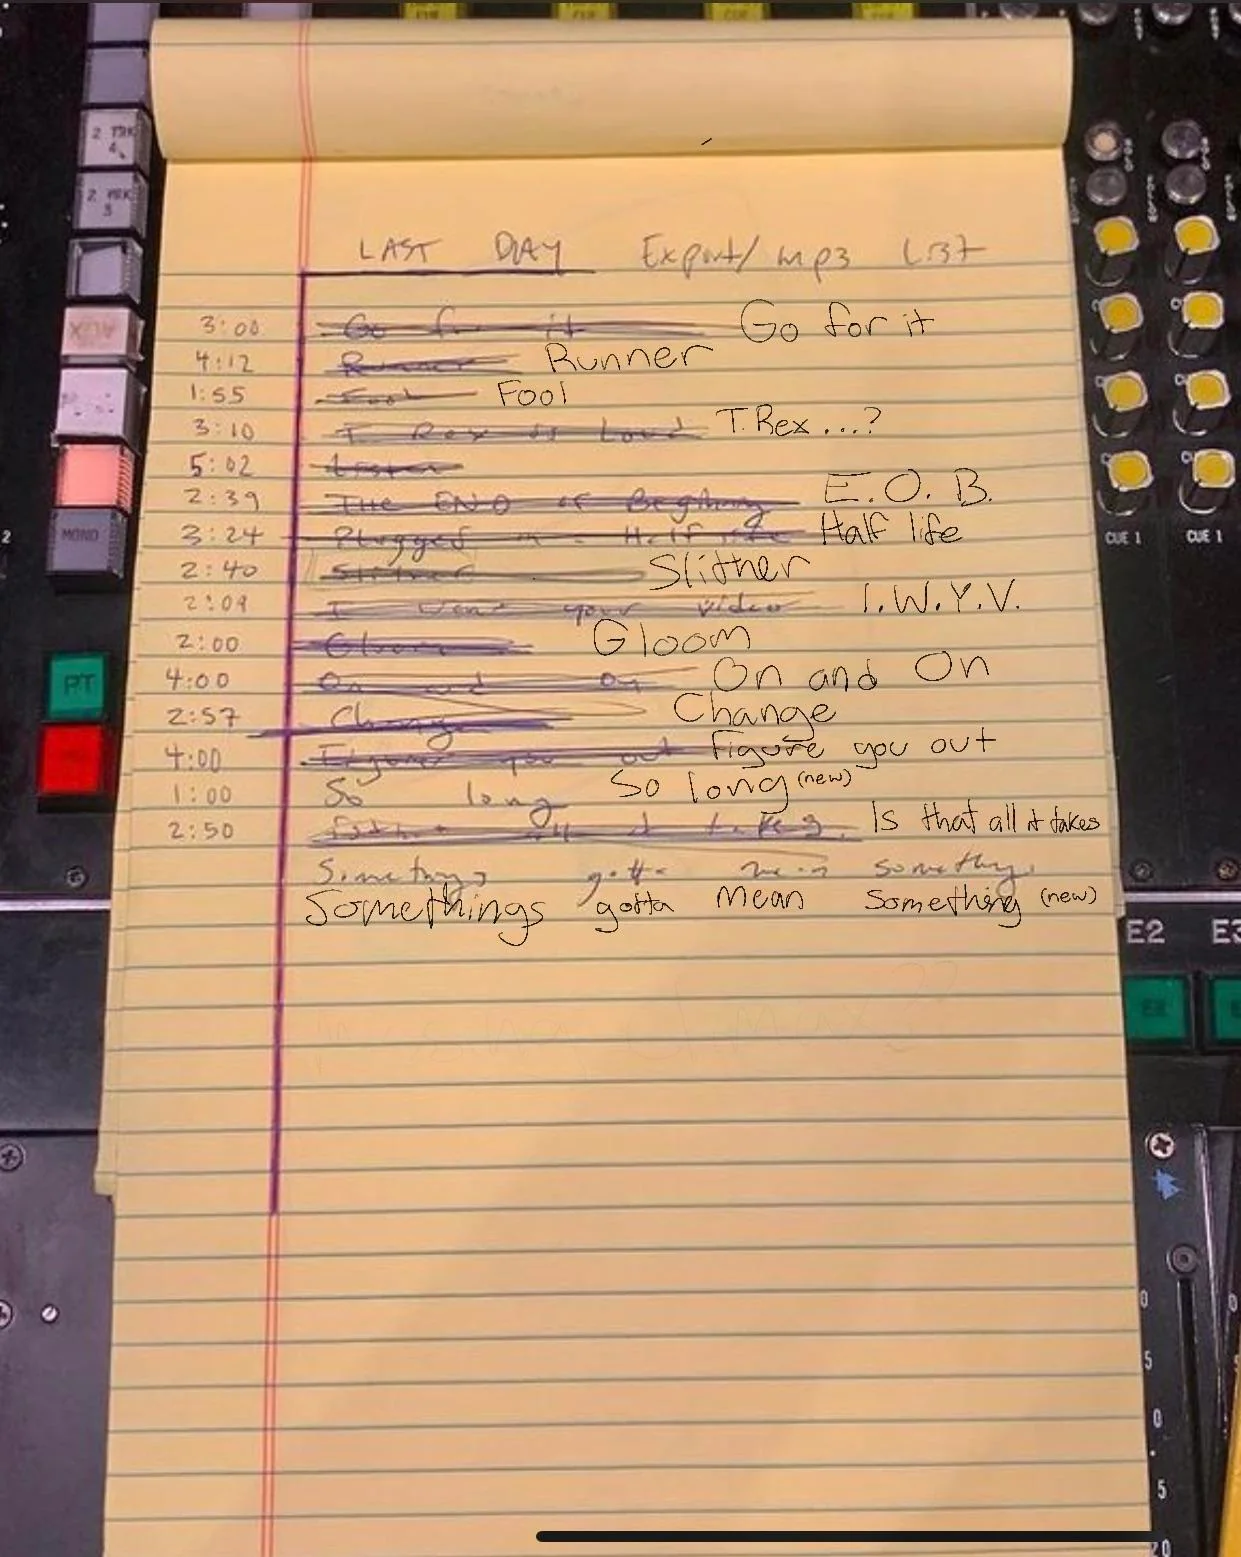 2 TRK 4
2 TRK 3
AUX
MONO
PT
LAST DAY Export/mp3 LIST
3:00 Go for it Go for it
4:12 Runner Runner
1:55 Fool Fool
3:10 T Rex is Loud T. Rex...?
5:02 Listen
2:39 THE END OF Begining E.O.B.
3:24 Plugged in - Half life Half life
2:40 Slither Slither
2:09 I want your video I.W.Y.V.
2:00 Gloom Gloom
4:00 On and On On and On
2:57 Change Change
4:00 Figure you out Figure you out
1:00 So long So long (new)
2:50 Is that all it takes Is that all it takes
Somethings gotta mean something
Somethings gotta Mean Something (new)
CUE 1 CUE 1
E2 E3